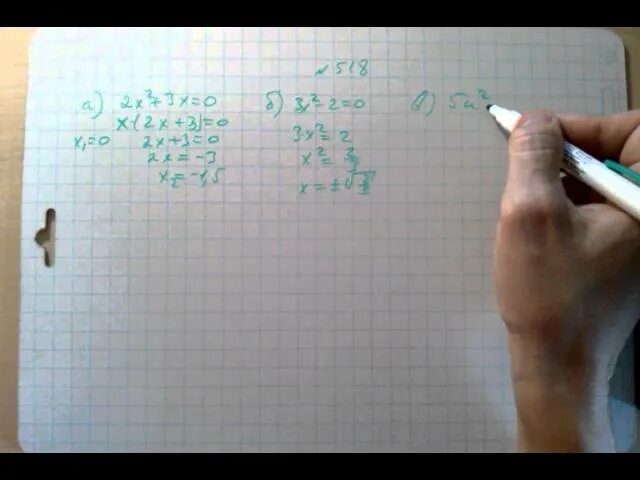 № 518
а) 2x²+3x=0
x(2x+3)=0
x₁=0 2x+3=0
2x=-3
x₂=-1,5
б) 3x²-2=0
3x²=2
x²=
x=±√
в) 5u²